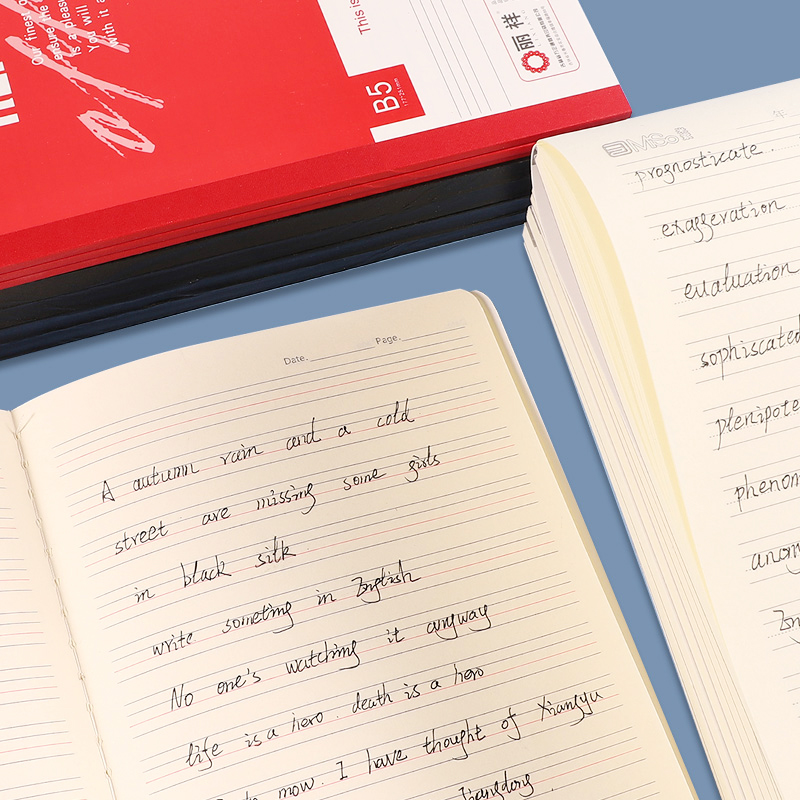 Our finest
ensure the
is a pleas
You will
with it a
This is
B5
丽祥
MiSo
年
Date.
Page.
A autumn rain and a cold
street are missing some girls
in black silk
write someting in English
No one's watching it anyway
life is a hero. death is a hero
now. I have thought of Xiangyu
Jiangdong.
prognosticate.
exaggeration
evaluation
sophiscated
plenipote
phenom
anony